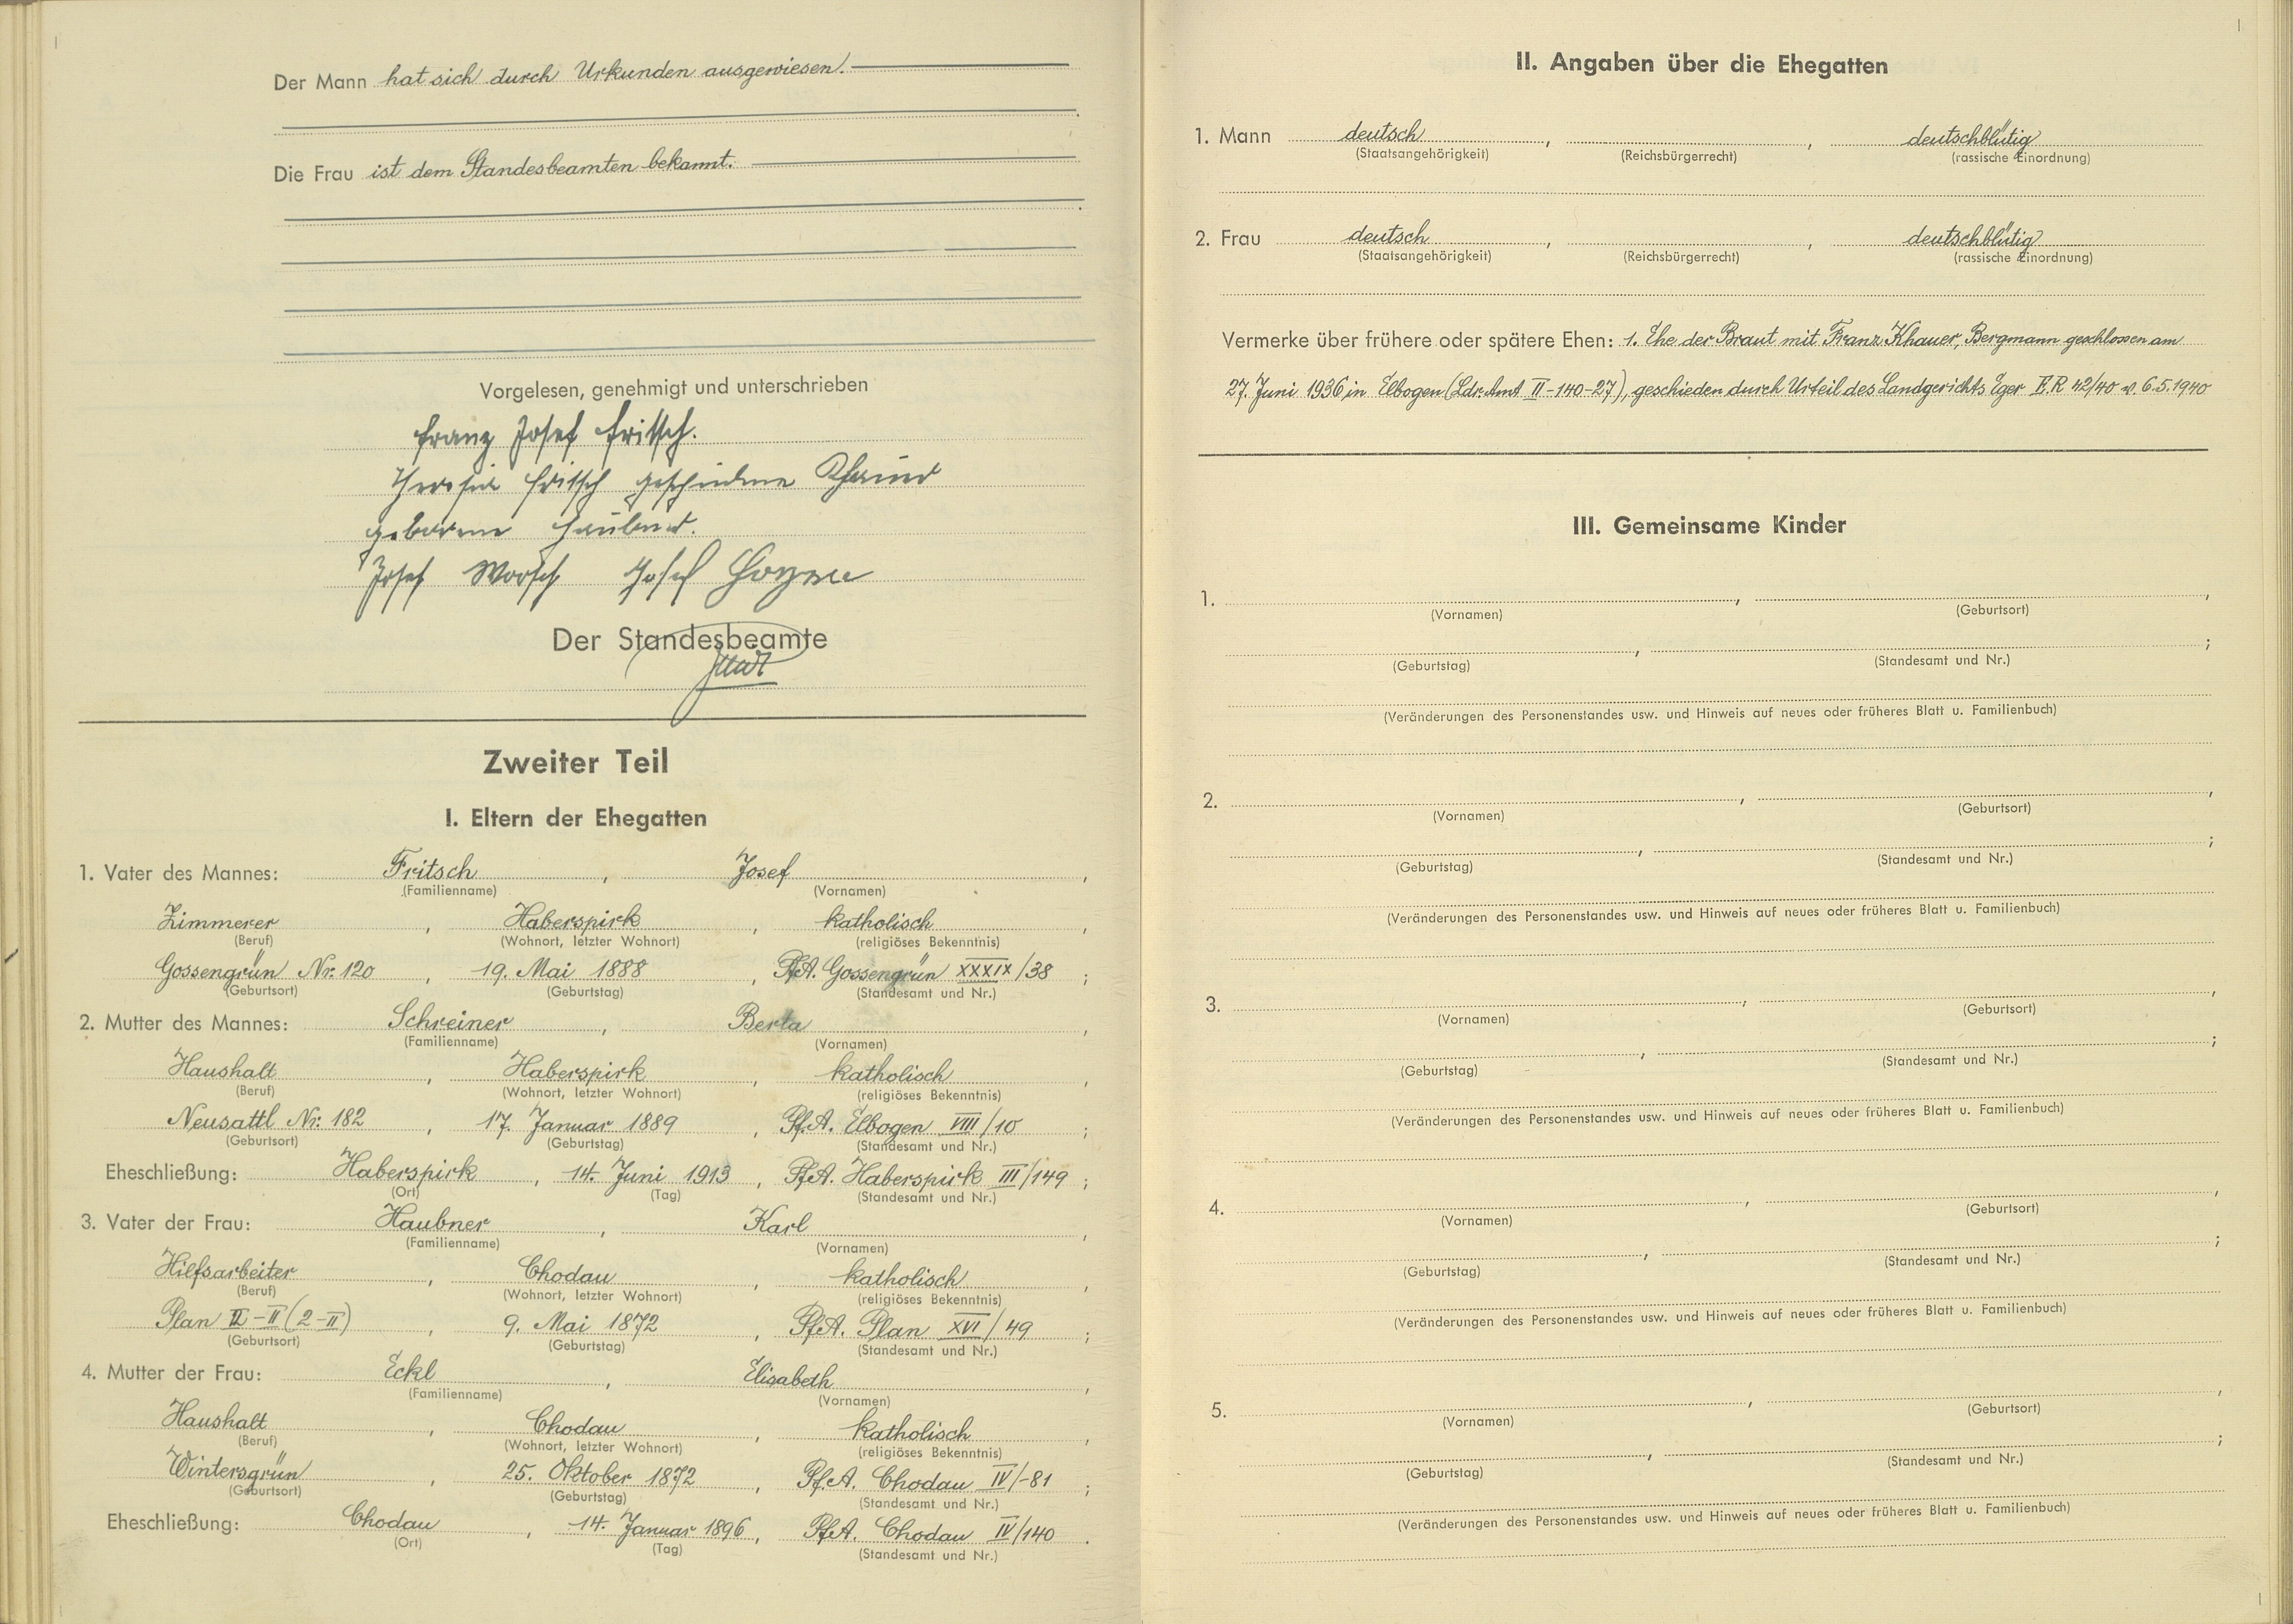 Der Mann hat sich durch Urkunden ausgewiesen.
Die Frau ist dem Standesbeamten bekannt.
Vorgelesen, genehmigt und unterschrieben
Franz Josef Fritsch.
Theresia Fritsch geschiedene Khauer
geborene Haubner.
Josef Worsch Josef
Der Standesbeamte
Zweiter Teil
I. Eltern der Ehegatten
1. Vater des Mannes: Fritsch , Josef ,
(Familienname) (Vornamen)
Zimmerer , Haberspirk , katholisch ,
(Beruf) (Wohnort, letzter Wohnort) (religiöses Bekenntnis)
Gossengrün Nr. 120 , 19. Mai 1888 , Pf.A. Gossengrün XXXIX/38 ;
(Geburtsort) (Geburtstag) (Standesamt und Nr.)
2. Mutter des Mannes: Schreiner , Berta ,
(Familienname) (Vornamen)
Haushalt , Haberspirk , katholisch ,
(Beruf) (Wohnort, letzter Wohnort) (religiöses Bekenntnis)
Neusattl Nr. 182 , 17. Januar 1889 , Pf.A. Elbogen VIII/10 ;
(Geburtsort) (Geburtstag) (Standesamt und Nr.)
Eheschließung: Haberspirk , 14. Juni 1913 , Pf.A. Haberspirk III/149 ;
(Ort) (Tag) (Standesamt und Nr.)
3. Vater der Frau: Haubner , Karl ,
(Familienname) (Vornamen)
Hilfsarbeiter , Chodau , katholisch ,
(Beruf) (Wohnort, letzter Wohnort) (religiöses Bekenntnis)
Plan II-II (2-II) , 9. Mai 1872 , Pf.A. Plan XVI/49 ;
(Geburtsort) (Geburtstag) (Standesamt und Nr.)
4. Mutter der Frau: Eckl , Elisabeth ,
(Familienname) (Vornamen)
Haushalt , Chodau , katholisch ,
(Beruf) (Wohnort, letzter Wohnort) (religiöses Bekenntnis)
Wintersgrün , 25. Oktober 1872 , Pf.A. Chodau IV/-81 ;
(Geburtsort) (Geburtstag) (Standesamt und Nr.)
Eheschließung: Chodau , 14. Januar 1896 , Pf.A. Chodau IV/140 .
(Ort) (Tag) (Standesamt und Nr.)
II. Angaben über die Ehegatten
1. Mann deutsch , , deutschblütig
(Staatsangehörigkeit) (Reichsbürgerrecht) (rassische Einordnung)
2. Frau deutsch , , deutschblütig
(Staatsangehörigkeit) (Reichsbürgerrecht) (rassische Einordnung)
Vermerke über frühere oder spätere Ehen: 1. Ehe der Braut mit Franz Khauer, Bergmann geschlossen am
27. Juni 1936 in Elbogen (Ldr. Amt II-140-27), geschieden durch Urteil des Landgerichts Eger E.R 42/40 v. 6.5.1940
III. Gemeinsame Kinder
1. , ,
(Vornamen) (Geburtsort)
, ;
(Geburtstag) (Standesamt und Nr.)
(Veränderungen des Personenstandes usw. und Hinweis auf neues oder früheres Blatt u. Familienbuch)
2. , ,
(Vornamen) (Geburtsort)
, ;
(Geburtstag) (Standesamt und Nr.)
(Veränderungen des Personenstandes usw. und Hinweis auf neues oder früheres Blatt u. Familienbuch)
3. , ,
(Vornamen) (Geburtsort)
, ;
(Geburtstag) (Standesamt und Nr.)
(Veränderungen des Personenstandes usw. und Hinweis auf neues oder früheres Blatt u. Familienbuch)
4. , ,
(Vornamen) (Geburtsort)
, ;
(Geburtstag) (Standesamt und Nr.)
(Veränderungen des Personenstandes usw. und Hinweis auf neues oder früheres Blatt u. Familienbuch)
5. , ,
(Vornamen) (Geburtsort)
, ;
(Geburtstag) (Standesamt und Nr.)
(Veränderungen des Personenstandes usw. und Hinweis auf neues oder früheres Blatt u. Familienbuch)